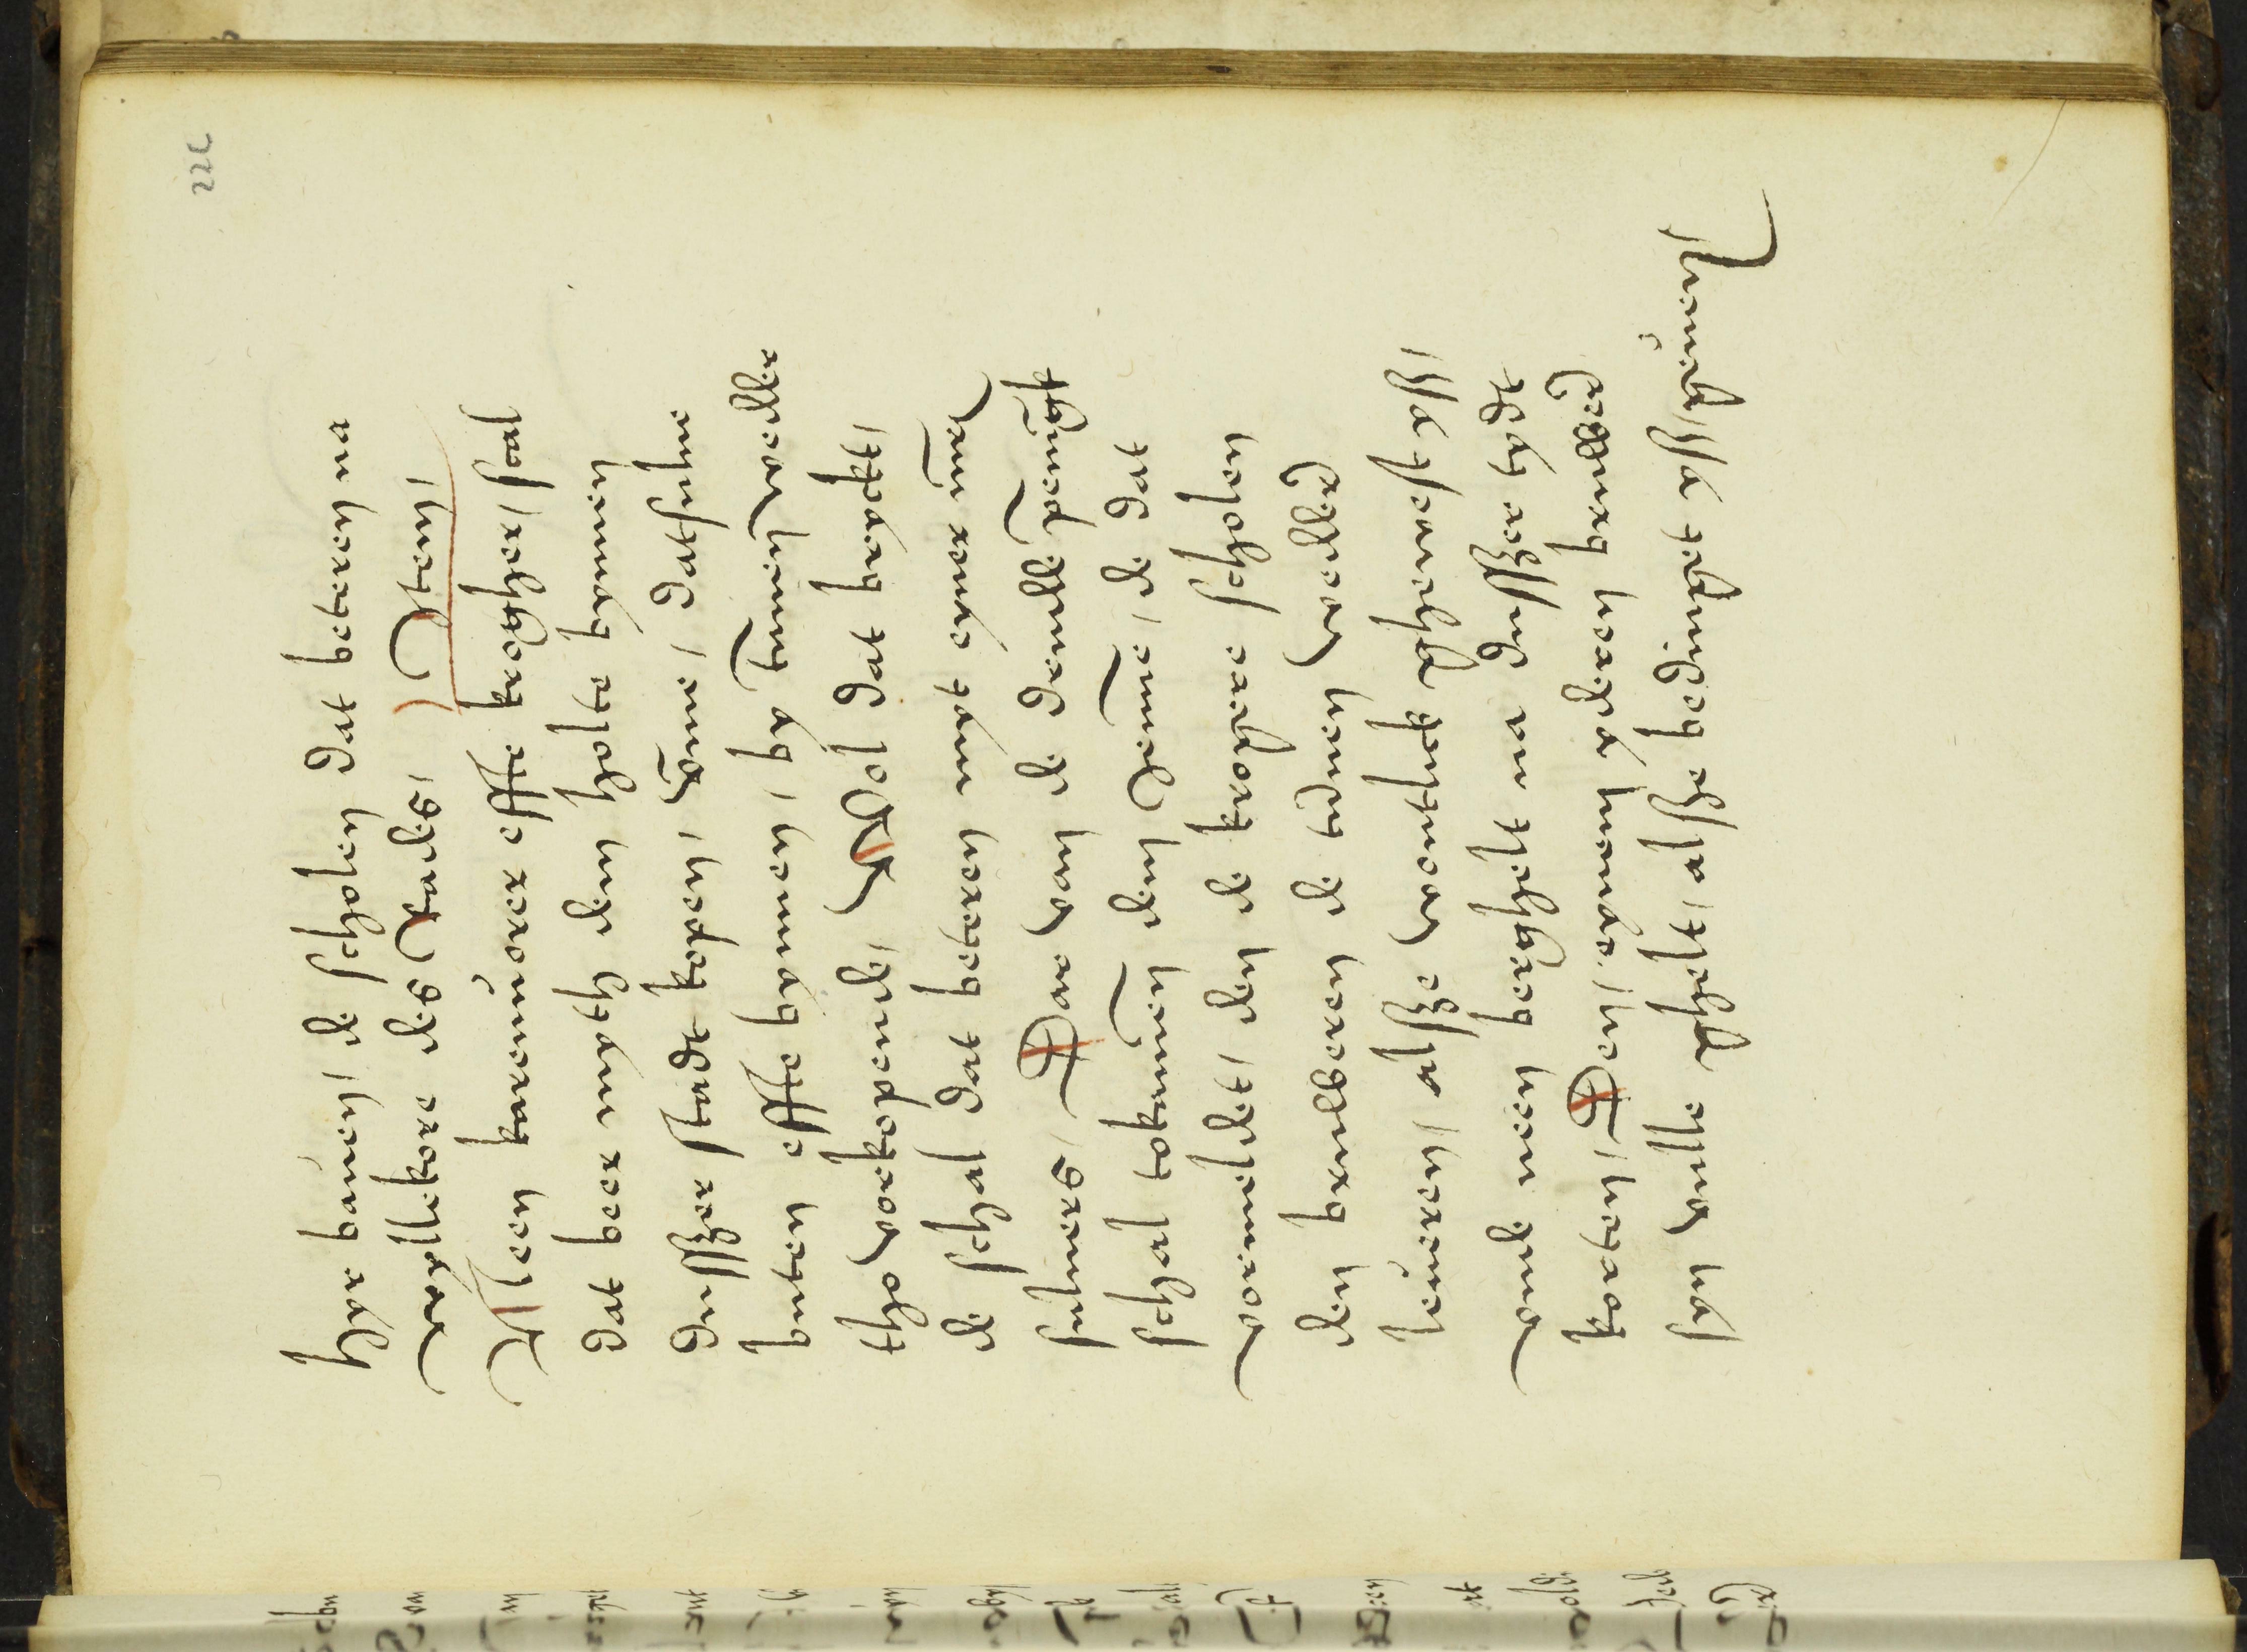 226
hyr bauen / de scholen dat beteren na
wyllekore des Rades / Item /
Neen karenuorer effte krogher / scal
dat beer myth dem holte bynnen
dusszer stadt kopen / vme / datsulue
buten effte bynnen / by tunnen wedder
tho vorkopende / Wol dat breyckt /
de schal dat beteren myt eyner mrc
suluers / Dar van de drudde penigk
schal tokamen dem jenne / de dat
vormeldet / den de krogere scholen
den bruwern de tunnen wedder
leueren / alsze wontlick ghewest ys /
vnde neen berghelt na dusszer tydt
korten / Den / eynem yderen bruwer
syn vulle ghelt / alsze bedinget ys / geuen